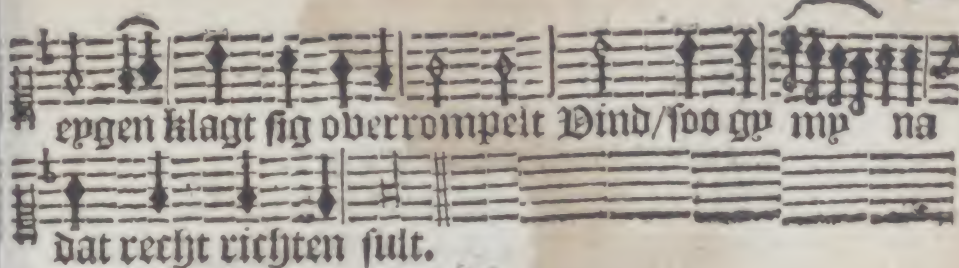 eygen klagt sig overrompelt Vind/soo gy my na
dat recht richten sult.